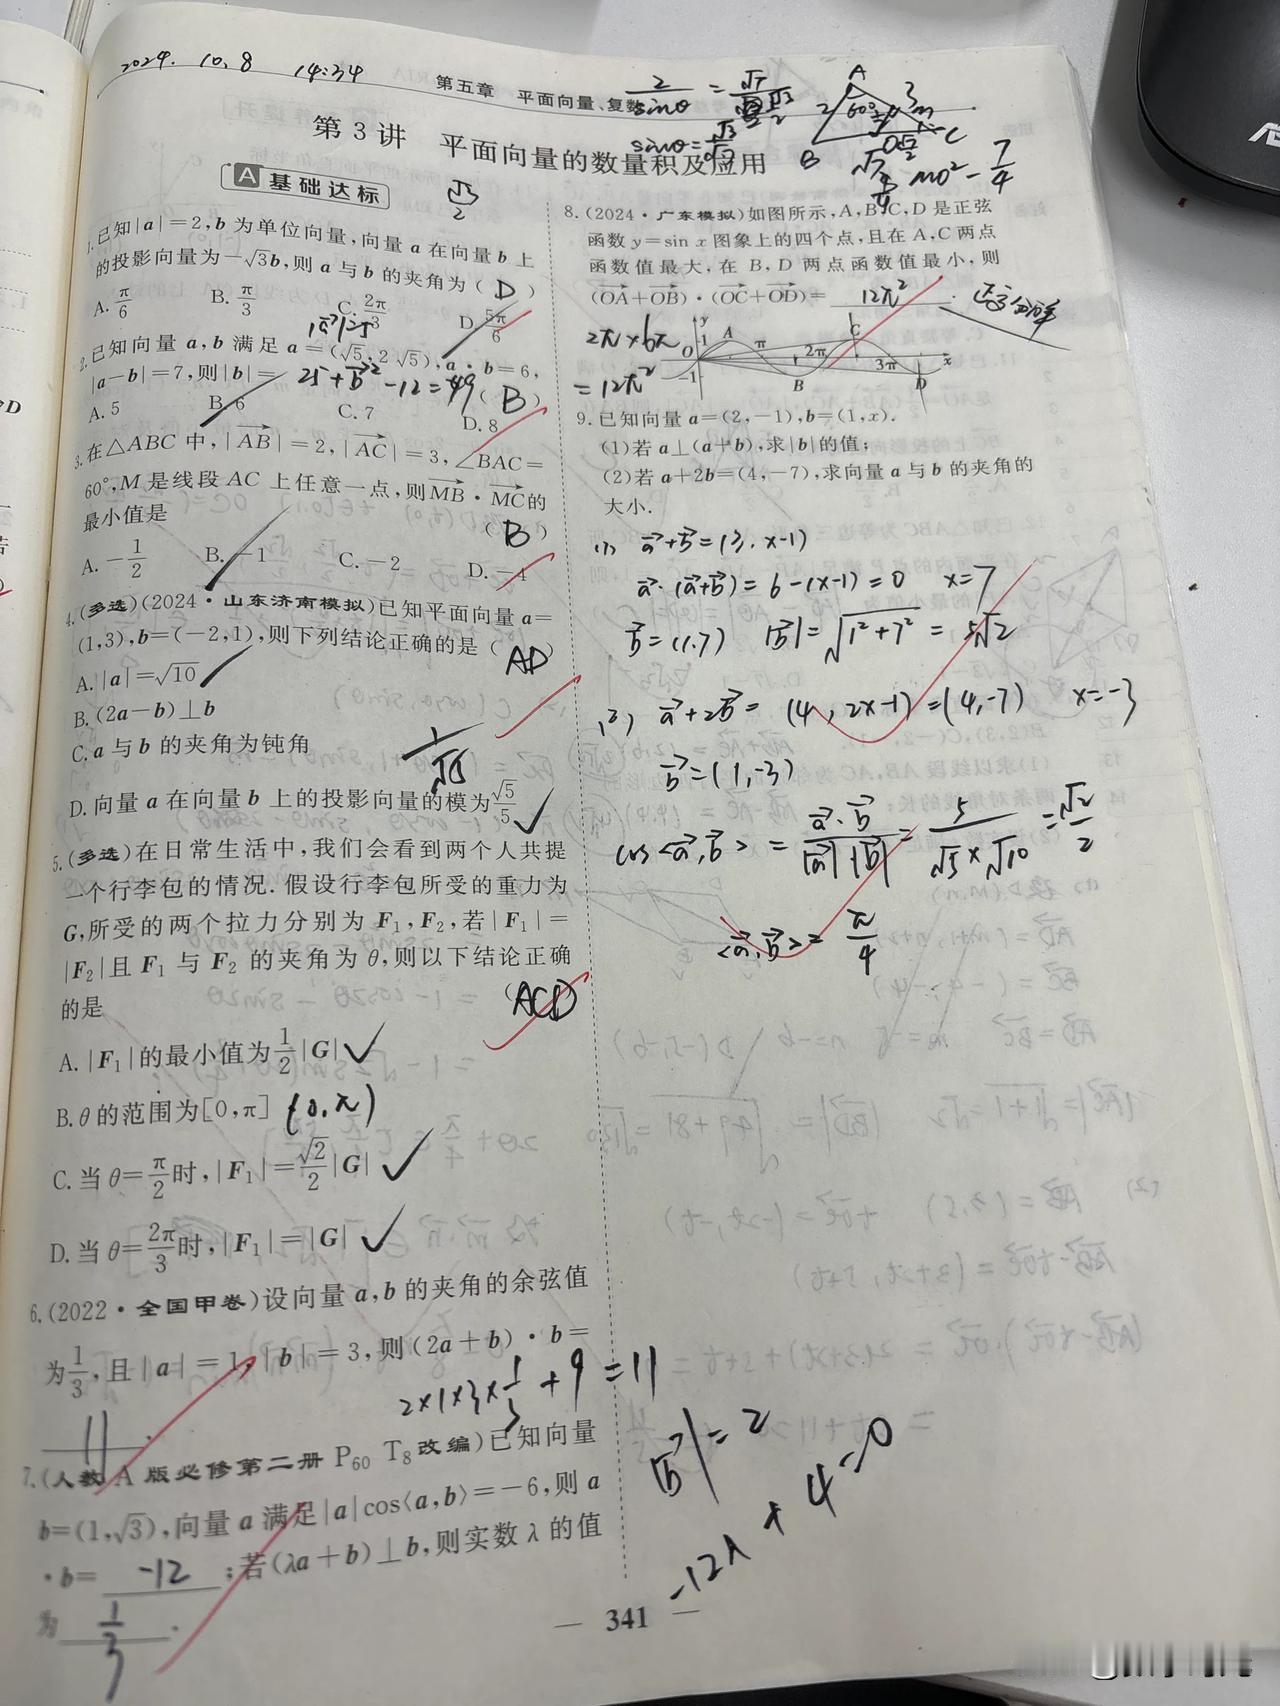 2024. 10.8 14:34
第五章 平面向量、复数
第3讲 平面向量的数量积及应用
A 基础达标
1.已知|a|=2,b为单位向量,向量a在向量b上
的投影向量为-√3b,则a与b的夹角为( D )
A. π/6 B. π/3 C. 2π/3 D. 5π/6
2.已知向量a,b满足a=(√5,2√5),a·b=6,
|a-b|=7,则|b|= ( B )
25+b²-12=49
A.5 B.6 C.7 D.8
3.在△ABC中,|AB|=2,|AC|=3,∠BAC=
60°,M是线段AC上任意一点,则MB·MC的
最小值是 ( B )
A.-1/2 B.-1 C.-2 D.-4
4.(多选)(2024·山东济南模拟)已知平面向量a=
(1,3),b=(-2,1),则下列结论正确的是( AD )
A.|a|=√10
B.(2a-b)⊥b
C.a与b的夹角为钝角
D.向量a在向量b上的投影向量的模为√5/5
5.(多选)在日常生活中,我们会看到两个人共提
一个行李包的情况.假设行李包所受的重力为
G,所受的两个拉力分别为F₁,F₂,若|F₁|=
|F₂|且F₁与F₂的夹角为θ,则以下结论正确
的是 ( ACD )
A.|F₁|的最小值为1/2|G| ✓
B.θ的范围为[0,π] (0,π)
C.当θ=π/2时,|F₁|=√2/2|G| ✓
D.当θ=2π/3时,|F₁|=|G| ✓
6.(2022·全国甲卷)设向量a,b的夹角的余弦值
为1/3,且|a|=1,|b|=3,则(2a+b)·b=
11.
2×1×3×1/3+9=11
7.(人教A版必修第二册P60 T8改编)已知向量
b=(1,√3),向量a满足|a|cos⟨a,b⟩=-6,则a
·b= -12 ;若(λa+b)⊥b,则实数λ的值
为 1/3 .
|b|=2
-12λ+4=0
8.(2024·广东模拟)如图所示,A,B,C,D是正弦
函数y=sin x图象上的四个点,且在A,C两点
函数值最大,在B,D两点函数值最小,则
(OA+OB)·(OC+OD)= 12π² .
2π×6π
=12π²
y 1 A π C O 2π x -1 B 3π D
9.已知向量a=(2,-1),b=(1,x).
(1)若a⊥(a+b),求|b|的值;
(2)若a+2b=(4,-7),求向量a与b的夹角的
大小.
(1) a+b=(3,x-1)
a·(a+b)=6-(x-1)=0 x=7
b=(1,7) |b|=√(1²+7²)=5√2
(2) a+2b=(4,2x-1)=(4,-7) x=-3
b=(1,-3)
cos<a,b>=a·b/|a|·|b|=5/√5×√10=√2/2
<a,b>=π/4
341